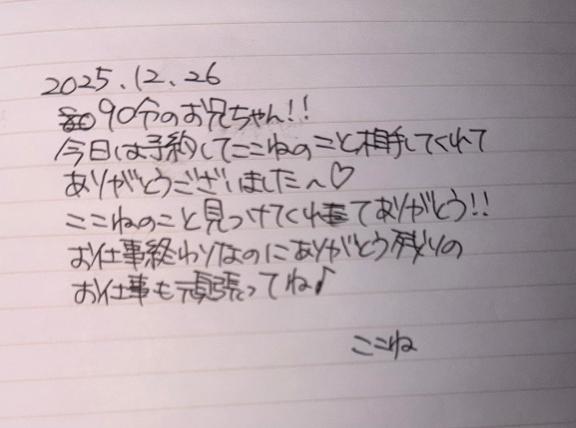 2025.12.26
90分のお兄ちゃん!!
今日は予約してここねのこと相手してくれて
ありがとうございました〜♡
ここねのこと見つけてくれてありがとう!!
お仕事終わりなのにありがとう残りの
お仕事も頑張ってね♪
ここね